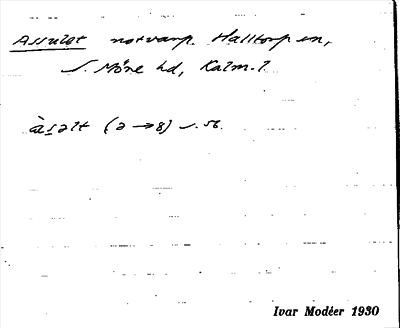 Assulot notvarp. Halltorp sn,
S. Möre hd, Kalm. l.
àsəlt (ə → 8) s. 56.
Ivar Modéer 1930